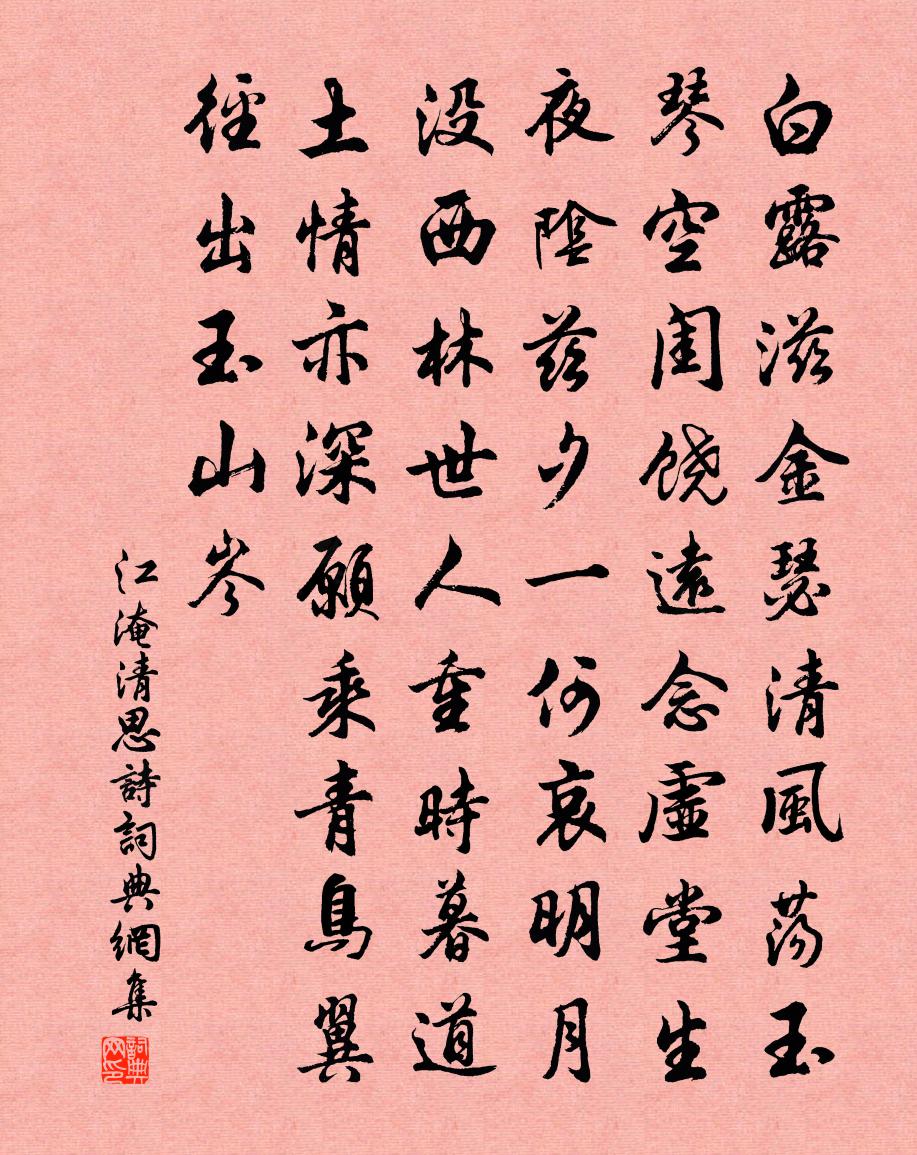 白露滋金瑟清風蕩玉
琴空閨饒遠念虛堂生
夜陰茲夕一何哀明月
没西林世人重時暮道
土情亦深願乘青鳥翼
徑出玉山岑
江淹清思詩詞典網集
詞典网印